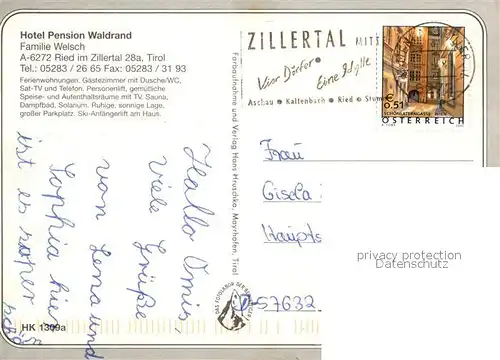 Hotel Pension Waldrand
Familie Welsch
A-6272 Ried im Zillertal 28a, Tirol
Tel.: 05283 / 26 65 Fax: 05283 / 31 93
Ferienwohnungen. Gästezimmer mit Dusche/WC,
Sat-TV und Telefon. Personenlift, gemütliche
Speise- und Aufenthaltsräume mit TV, Sauna,
Dampfbad, Solarium. Ruhige, sonnige Lage,
großer Parkplatz. Ski-Anfängerlift am Haus.
Hallo Omis
Viele Grüße
von Lena und
Sophia hier
ist es
HK 1309a
Farbaufnahme und Verlag Hans Hruschka, Mayrhofen, Tirol
DAS FOTOHAUS DER
ZILLERTAL MITT
Vier Dörfer
Eine Idylle
Aschau Kaltenbach Ried Stumm
€ 0,51
SCHÖNLATERNGASSE WIEN
ÖSTERREICH
Frau
Gisela
Haupts
D-57632
privacy protection
Datenschutz